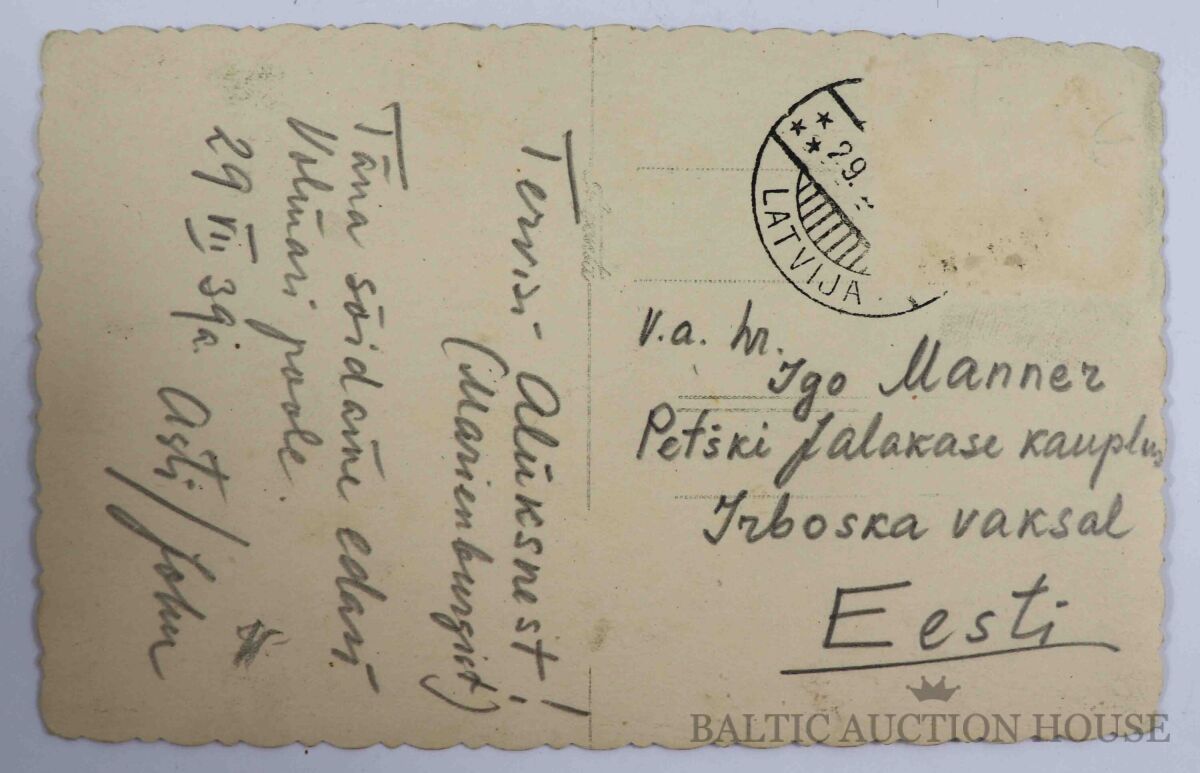 Tervisi Alūksnest!
(Marienburgist)
Täna sõidame edasi
Volmari poole.
29 VII 39a. Asti/John
29.
LATVIJA
V.a. hr.
Igo Manner
Petški Jalakase kauplus
Irboska vaksal
Eesti
BALTIC AUCTION HOUSE